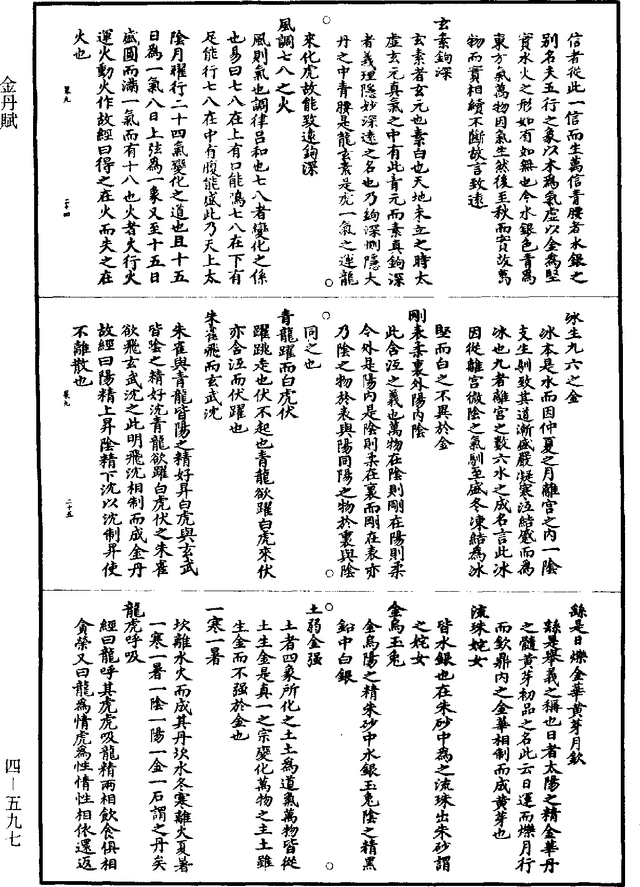 信者從此一信而生萬信青腰者水銀之
別名夫五行之象以木為氣虛以金為堅
實水火之形如有如無也今水銀色青為
東方氣萬物因氣生然後至秋而實故萬
物而實相續不斷故言致遠
玄素鉤深
玄素者玄元也素白也天地未立之時太
虛玄元真氣之中有此青元而素真鉤深
者義理隱妙深遠之名也乃鉤深惻隱大
丹之中青腰是龍玄素是虎一氣之運龍
來化虎故能致遠鉤深
風調七八之火
風則氣也調律呂和也七八者變化之係
也易曰七八在上有口能鳴七八在下有
足能行七八在中有腹能盛此乃天上太
陰月曜行二十四氣變化之道也且十五
日為一氣八日上弦為一象又至十五日
盛圓而滿一氣而有十八也火者火行火
運火動火作故經曰得之在火而失之在
火也
冰生九六之金
冰本是水而因仲夏之月離宮之內一陰
支生馴致其道漸盛嚴凝寒沍結感而為
冰也九者離宮之數六水之成名言此冰
因從離宮微陰之氣馴至盛冬凍結為冰
堅而白之不異於金
剛表柔裏外陽內陰
此含沍之義也萬物在陰則剛在陽則柔
今外是陽內是陰則柔在裏而剛在表亦
乃陰之物於表與陽同陽之物於裏與陰
同之也
青龍躍而白虎伏
躍跳走也伏不起也青龍欲躍白虎來伏
亦含沍而伏躍也
朱雀飛而玄武沈
朱雀與青龍皆陽之精好昇白虎與玄武
皆陰之精好沈青龍欲躍白虎伏之朱雀
欲飛玄武沈之此明飛沈相制而成金丹
故經曰陽精上昇陰精下沈以沈制昇使
不離散也
繇是日爍金華黃芽月欽
繇是舉義之稱也日者太陽之精金華丹
之髓黃芽初品之名此云日運而爍月行
而欽鼎內之金華相制而成黃芽也
流珠姹女
皆水銀也在朱砂中為之流珠出朱砂謂
之姹女
金烏玉兔
金烏陽之精朱砂中水銀玉兔陰之精黑
鉛中白銀
土弱金強
土者四象所化之土土為道氣萬物皆從
土生金是真一之宗變化萬物之主土雖
生金而不強於金也
一寒一暑
坎離水火而成其丹坎水冬寒離火夏暑
一寒一暑一陰一陽一金一石謂之丹矣
龍虎呼吸
經曰龍呼其虎虎吸龍精兩相飲食俱相
貪榮又曰龍為情虎為性情性相依還返
金丹賦
四－五九七
二十四
二十五